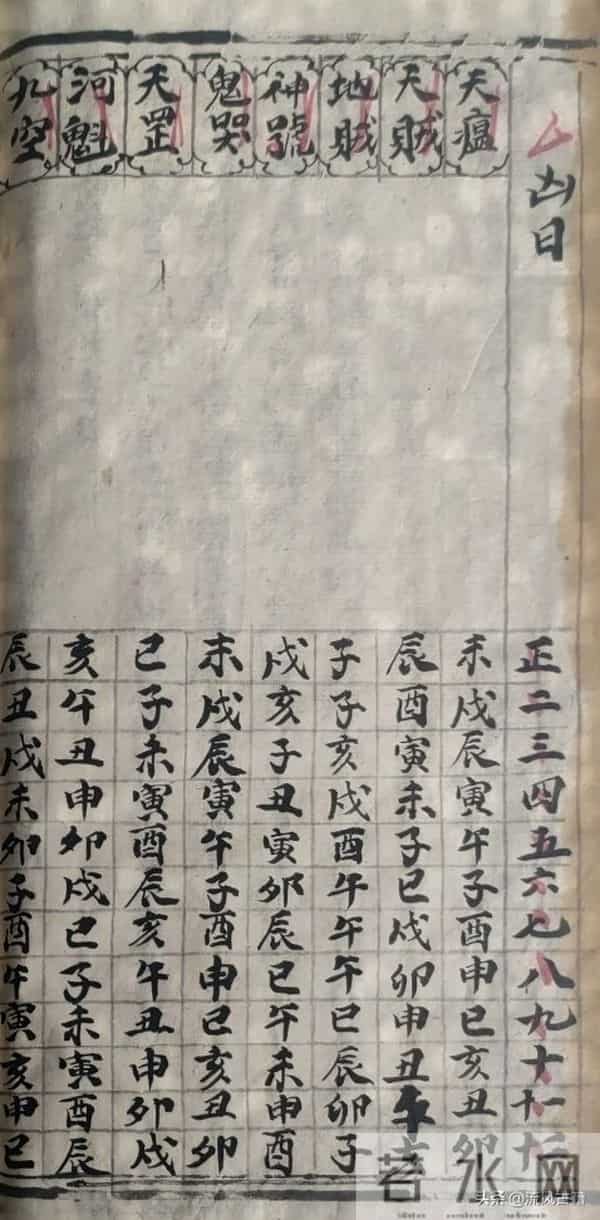 凶日
正二三四五六七八九十十一十二
天瘟
未戌辰寅午子酉申巳亥丑卯
天賊
辰酉寅未子巳戌卯申丑午
地賊
子子亥戌酉午午午巳辰卯子
神號
戌亥子丑寅卯辰巳午未申酉
鬼哭
未戌辰寅午子酉申巳亥丑卯
天罡
巳子未寅酉辰亥午丑申卯戌
河魁
亥午丑申卯戌巳子未寅酉辰
九空
辰丑戌未卯子酉午寅亥申巳
若水网
头条 @流风古籍